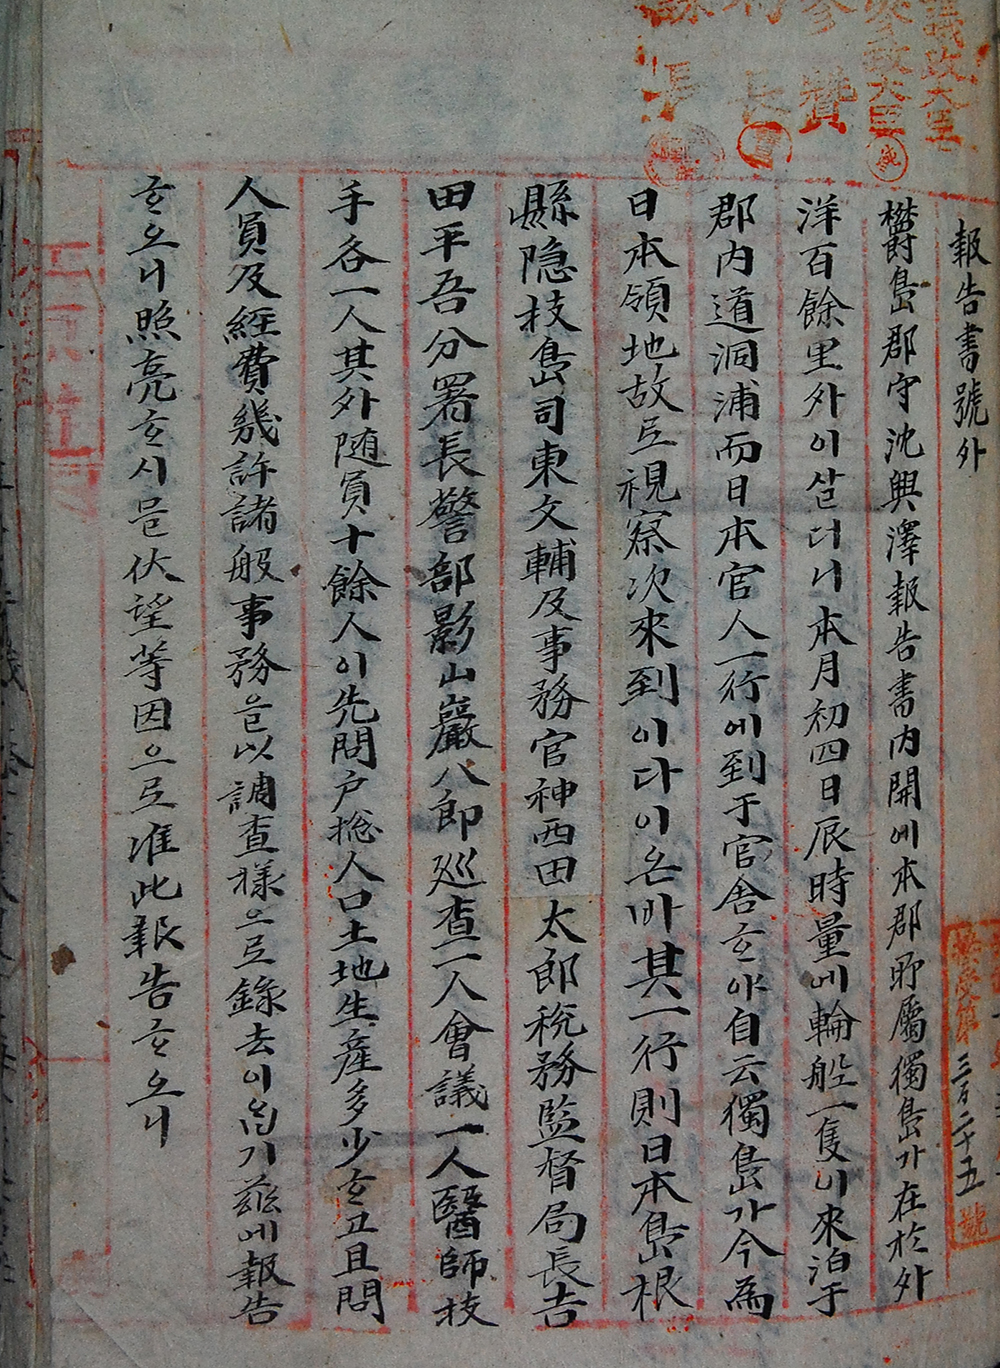 議政大臣
參政大臣
參贊
局長
課長
報告書號外
欝島郡守沈興澤報告書內開에本郡所屬獨島가在於外
洋百餘里外이살더니本月初四日辰時量에輪船一隻이來泊于
郡內道洞浦而日本官人一行에到于官舍ᄒᆞ야自云獨島가今爲
日本領地故로視察次來到이다이온바其一行則日本島根
縣隱枝島司東文輔及事務官神西田太郞稅務監督局長吉
田平吾分署長警部影山巖八郞巡査一人會議一人醫師技
手各一人其外隨員十餘人이先問戶摠人口土地生産多少ᄒᆞ고且問
人員及經費幾許諸般事務을以調査樣으로錄去이ᄋᆞᆸ기玆에報告
ᄒᆞ오니照亮ᄒᆞ시믈伏望等因으로准此報告ᄒᆞ오니
接受第三百二十五號